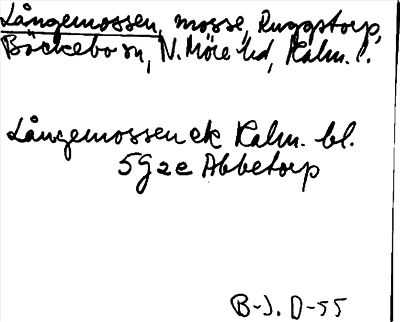 Långemossen, mosse, Ruggstorp,
Bäckebo sn, N. Möre hd, Kalm. l.
Långemossen ek Kalm. bl.
5G2e Abbetorp
B-J. D-55